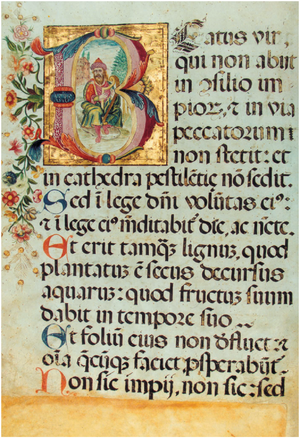 Beatus vir,
qui non abiit
in ꝯsilio im
pioꝝ, ⁊ in via
peccatorum ı
non stetit: et
in cathedra pestilētie nō sedit.
Sed ī lege dn̄i volūtas eiꝰ:
⁊ ī lege eiꝰ m̄ditabit̉ die, ac nc̄te.
Et erit tamꝗ̄ lignuꝫ, quod
plantatuꝫ ē secus decursus
aquaruꝫ: quod fructuꝫ suum
dabit in tempore suo.
Et foliuꝫ eius non dr̄fluet ⁊
oīa q̄cūꝗꝫ faciet ꝓsꝑabūt̉.
Non sic impij, non sic: sed